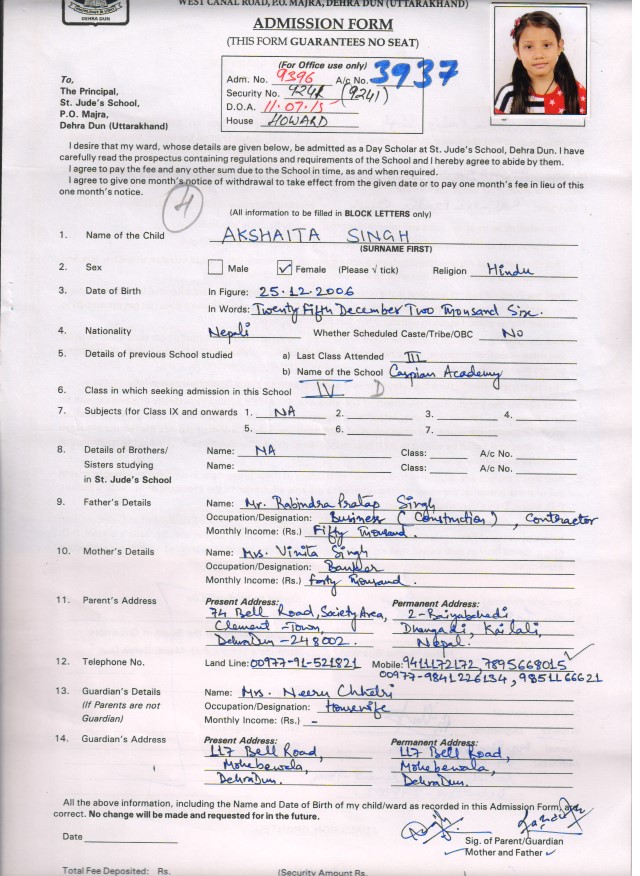 WEST CANAL ROAD, P.O. MAJRA, DEHRA DUN (UTTARAKHAND)
DEHRA DUN
ADMISSION FORM
(THIS FORM GUARANTEES NO SEAT)
(For Office use only)
Adm. No. 9396 A/c No. 3937
Security No. 9241 (9241)
D.O.A. 11.07.15
House HOWARD
To,
The Principal,
St. Jude's School,
P.O. Majra,
Dehra Dun (Uttarakhand)
I desire that my ward, whose details are given below, be admitted as a Day Scholar at St. Jude's School, Dehra Dun. I have
carefully read the prospectus containing regulations and requirements of the School and I hereby agree to abide by them.
I agree to pay the fee and any other sum due to the School in time, as and when required.
I agree to give one month's notice of withdrawal to take effect from the given date or to pay one month's fee in lieu of this
one month's notice.
(All information to be filled in BLOCK LETTERS only)
1. Name of the Child AKSHAITA SINGH
(SURNAME FIRST)
2. Sex Male ✓ Female (Please √ tick) Religion Hindu
3. Date of Birth In Figure: 25.12.2006
In Words: Twenty Fifth December Two Thousand Six.
4. Nationality Nepali Whether Scheduled Caste/Tribe/OBC No
5. Details of previous School studied a) Last Class Attended III
b) Name of the School Caspian Academy
6. Class in which seeking admission in this School IV D
7. Subjects (for Class IX and onwards 1. NA 2. 3. 4.
5. 6. 7.
8. Details of Brothers/ Name: NA Class: A/c No.
Sisters studying Name: Class: A/c No.
in St. Jude's School
9. Father's Details Name: Mr. Rabindra Pratap Singh
Occupation/Designation: Business (Construction), Contractor
Monthly Income: (Rs.) Fifty Thousand.
10. Mother's Details Name: Mrs. Vinita Singh
Occupation/Designation: Banker
Monthly Income: (Rs.) Forty Thousand.
11. Parent's Address Present Address: Permanent Address:
74 Bell Road, Society Area, 2-Baiyabehedi
Clement-Town, Dhangadi, Kailali,
DehraDun-248002. Nepal.
12. Telephone No. Land Line: 00977-91-521821 Mobile: 9411172172, 7895668015
00977-9841226134, 9851166621
13. Guardian's Details Name: Mrs. Neeru Chhetri
(If Parents are not Occupation/Designation: Housewife
Guardian) Monthly Income: (Rs.) -
14. Guardian's Address Present Address: Permanent Address:
117 Bell Road, 117 Bell Road,
Mohebewala, Mohebewala,
DehraDun. DehraDun.
All the above information, including the Name and Date of Birth of my child/ward as recorded in this Admission Form, are
correct. No change will be made and requested for in the future.
Date
Sig. of Parent/Guardian
Mother and Father
Total Fee Deposited: Rs. (Security Amount Rs.